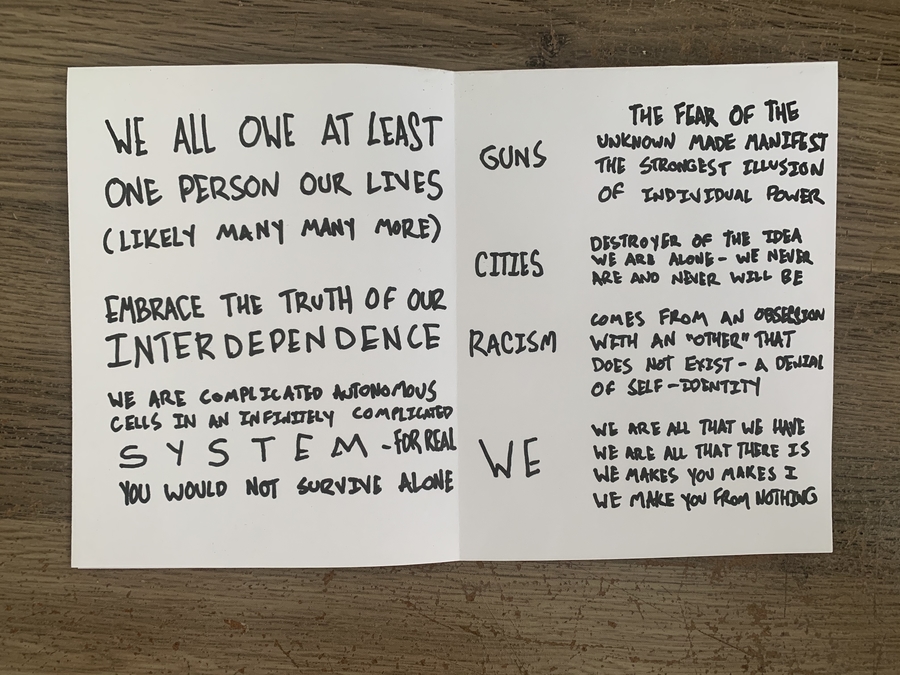 WE ALL OWE AT LEAST
ONE PERSON OUR LIVES
(LIKELY MANY MANY MORE)
EMBRACE THE TRUTH OF OUR
INTERDEPENDENCE
WE ARE COMPLICATED AUTONOMOUS
CELLS IN AN INFINITELY COMPLICATED
SYSTEM - FOR REAL
YOU WOULD NOT SURVIVE ALONE
GUNS
THE FEAR OF THE
UNKNOWN MADE MANIFEST
THE STRONGEST ILLUSION
OF INDIVIDUAL POWER
CITIES
DESTROYER OF THE IDEA
WE ARE ALONE - WE NEVER
ARE AND NEVER WILL BE
RACISM
COMES FROM AN OBSESSION
WITH AN "OTHER" THAT
DOES NOT EXIST - A DENIAL
OF SELF-IDENTITY
WE
WE ARE ALL THAT WE HAVE
WE ARE ALL THAT THERE IS
WE MAKES YOU MAKES I
WE MAKE YOU FROM NOTHING